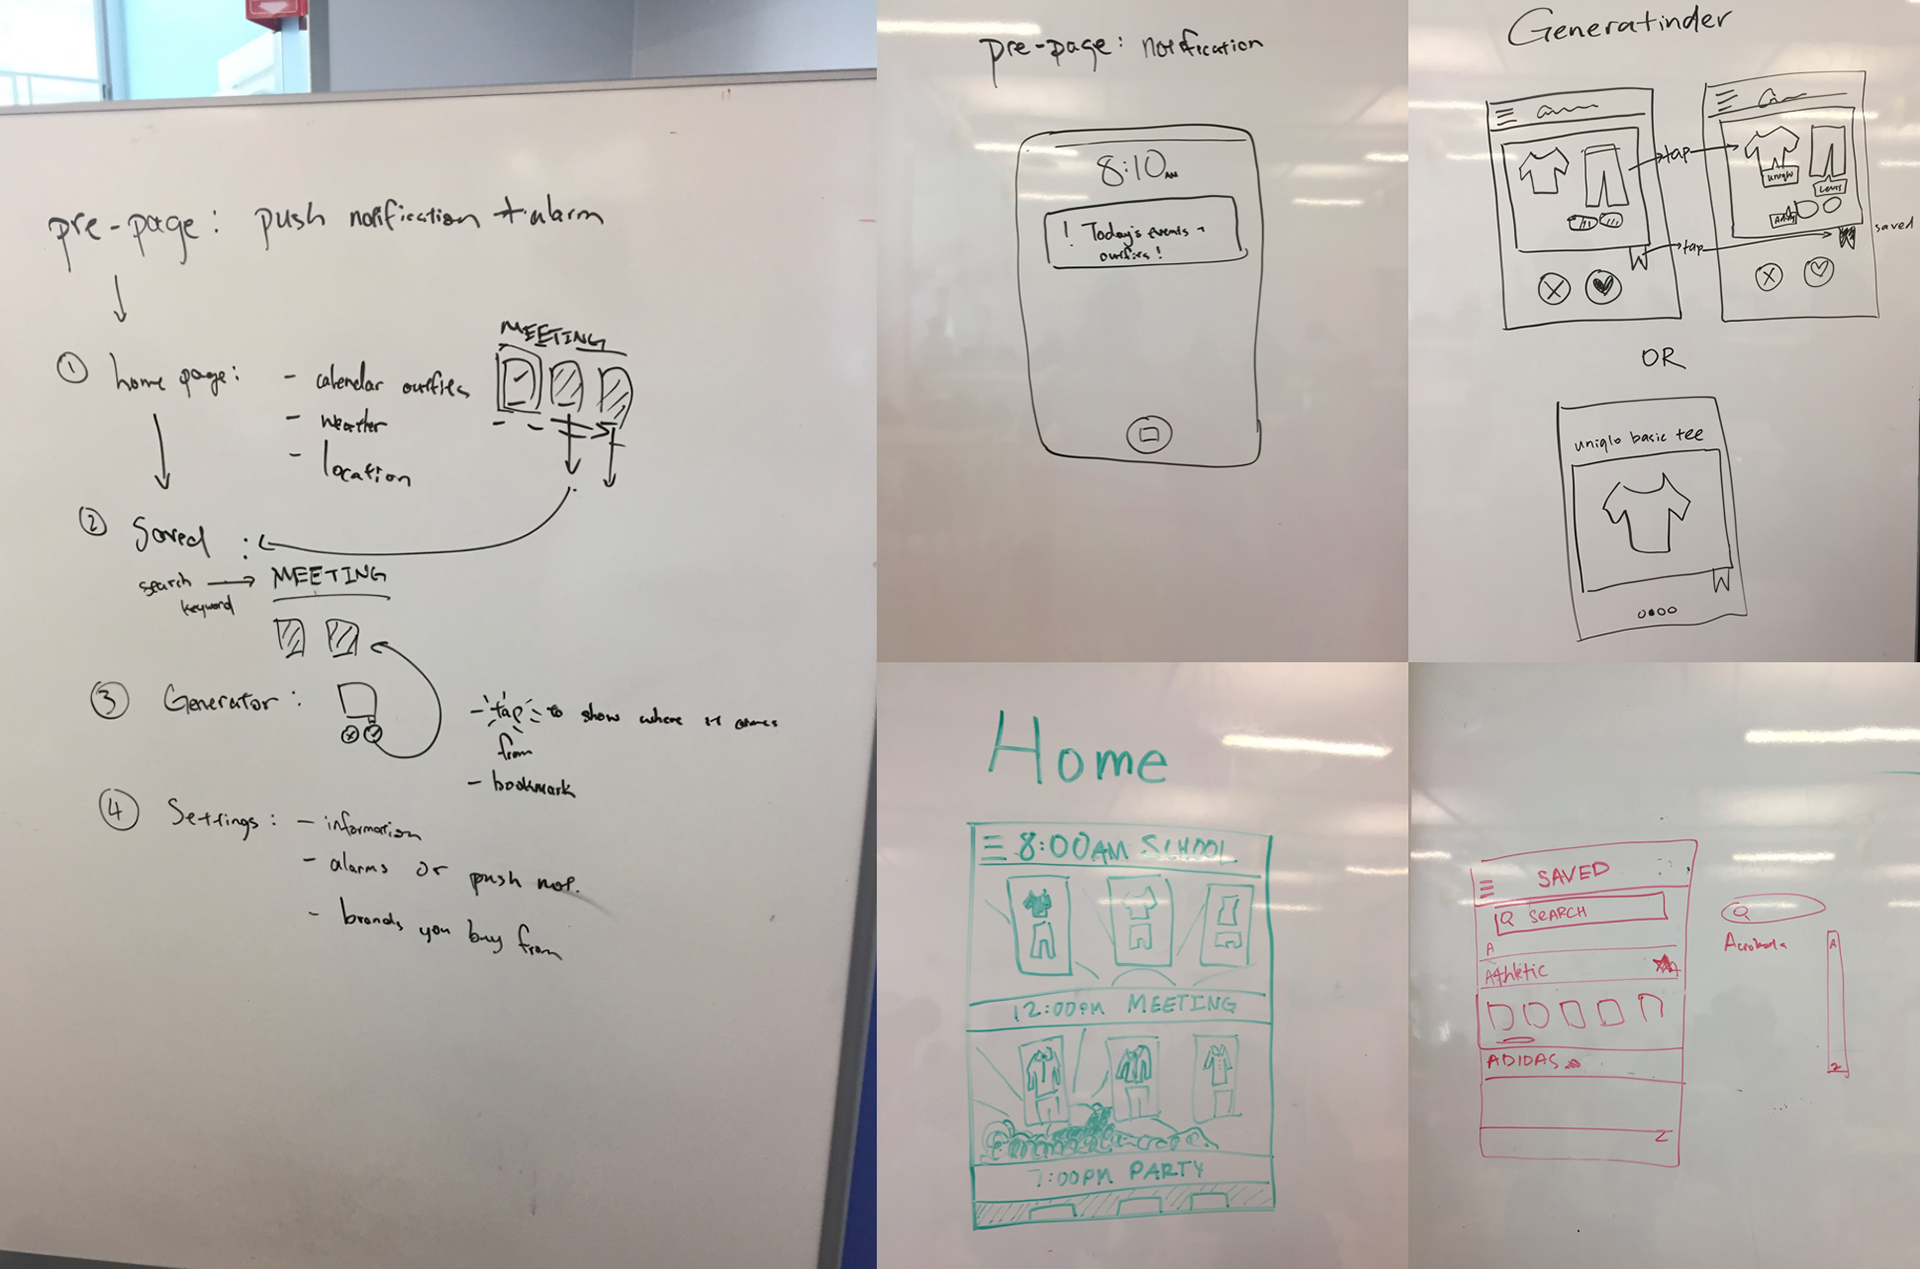 pre-page: push notification + alarm
① home page: - calendar outfits
- weather
- location
MEETING
② Saved :
search keyword → MEETING
③ Generator :
- tap to show where it comes from
- bookmark
④ Settings: - information
- alarms or push not.
- brands you buy from
pre-page: notification
8:10 AM
! Today's events + outfits!
Generatinder
tap
tap
uniqlo
Levis
saved
OR
uniqlo basic tee
Home
8:00AM SCHOOL
12:00PM MEETING
7:00PM PARTY
SAVED
SEARCH
A
Athletic
ADIDAS
Z
A
Z